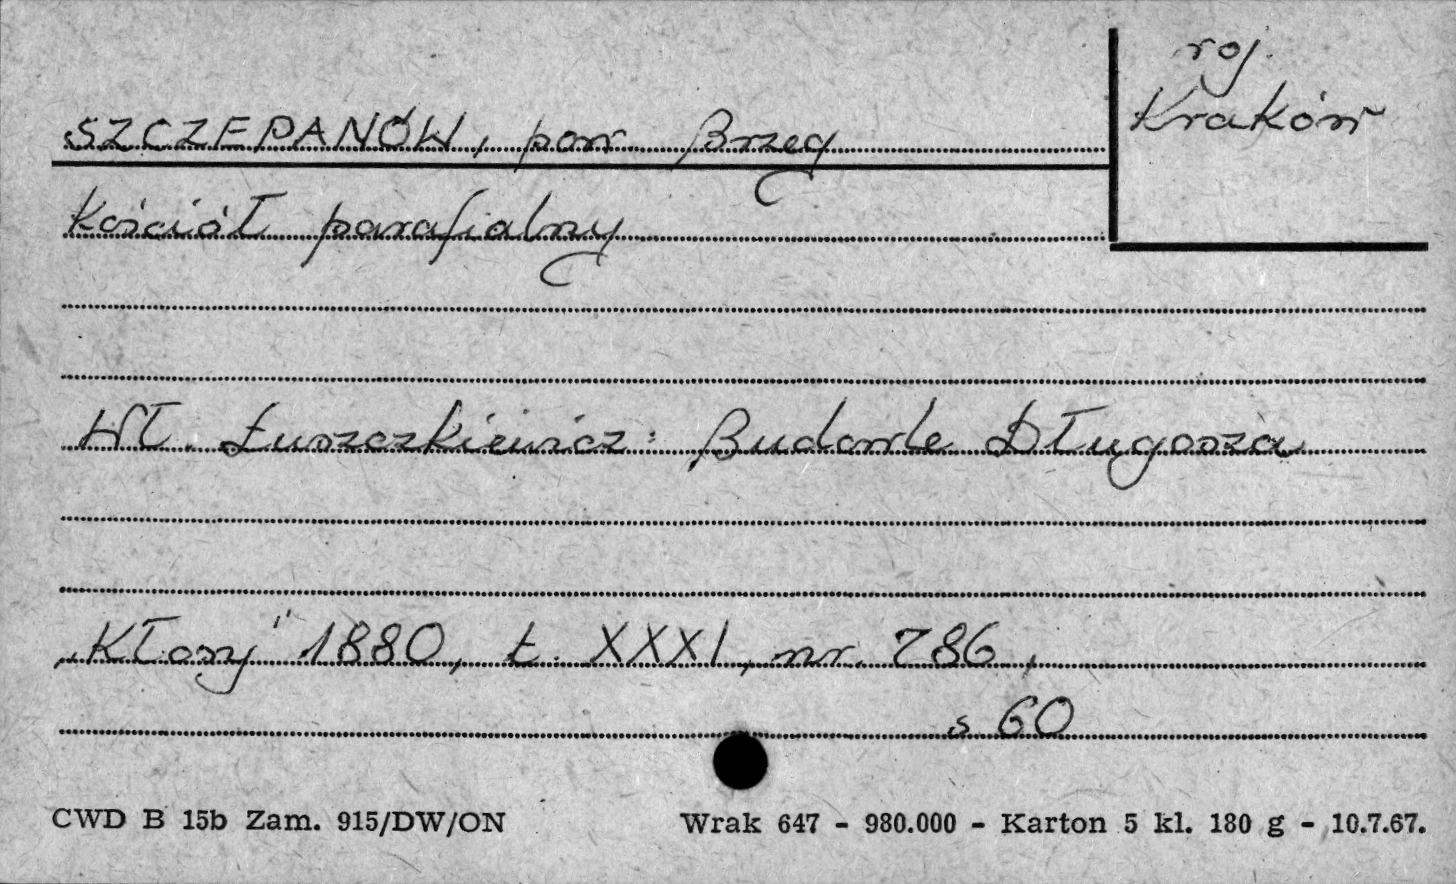 roj.
Kraków
SZCZEPANÓW, pow Brzeg
Kościół parafialny
Wł. Łuszczkiewicz: Budowle Długosza
„Kłosy" 1880, t. XXXI, nr. 786,
s 60
CWD B 15b Zam. 915/DW/ON Wrak 647 - 980.000 - Karton 5 kl. 180 g - 10.7.67.